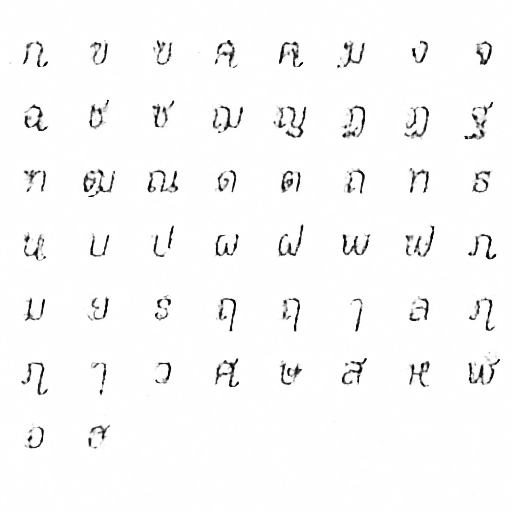 ก ข ฃ ค ฅ ฆ ง จ
ฉ ช ซ ฌ ญ ฎ ฏ ฐ
ฑ ฒ ณ ด ต ถ ท ธ
น บ ป ผ ฝ พ ฟ ภ
ม ย ร ฤ ฤ า ล ฦ
ฦ ๅ ว ศ ษ ส ห ฬ
อ ฮ